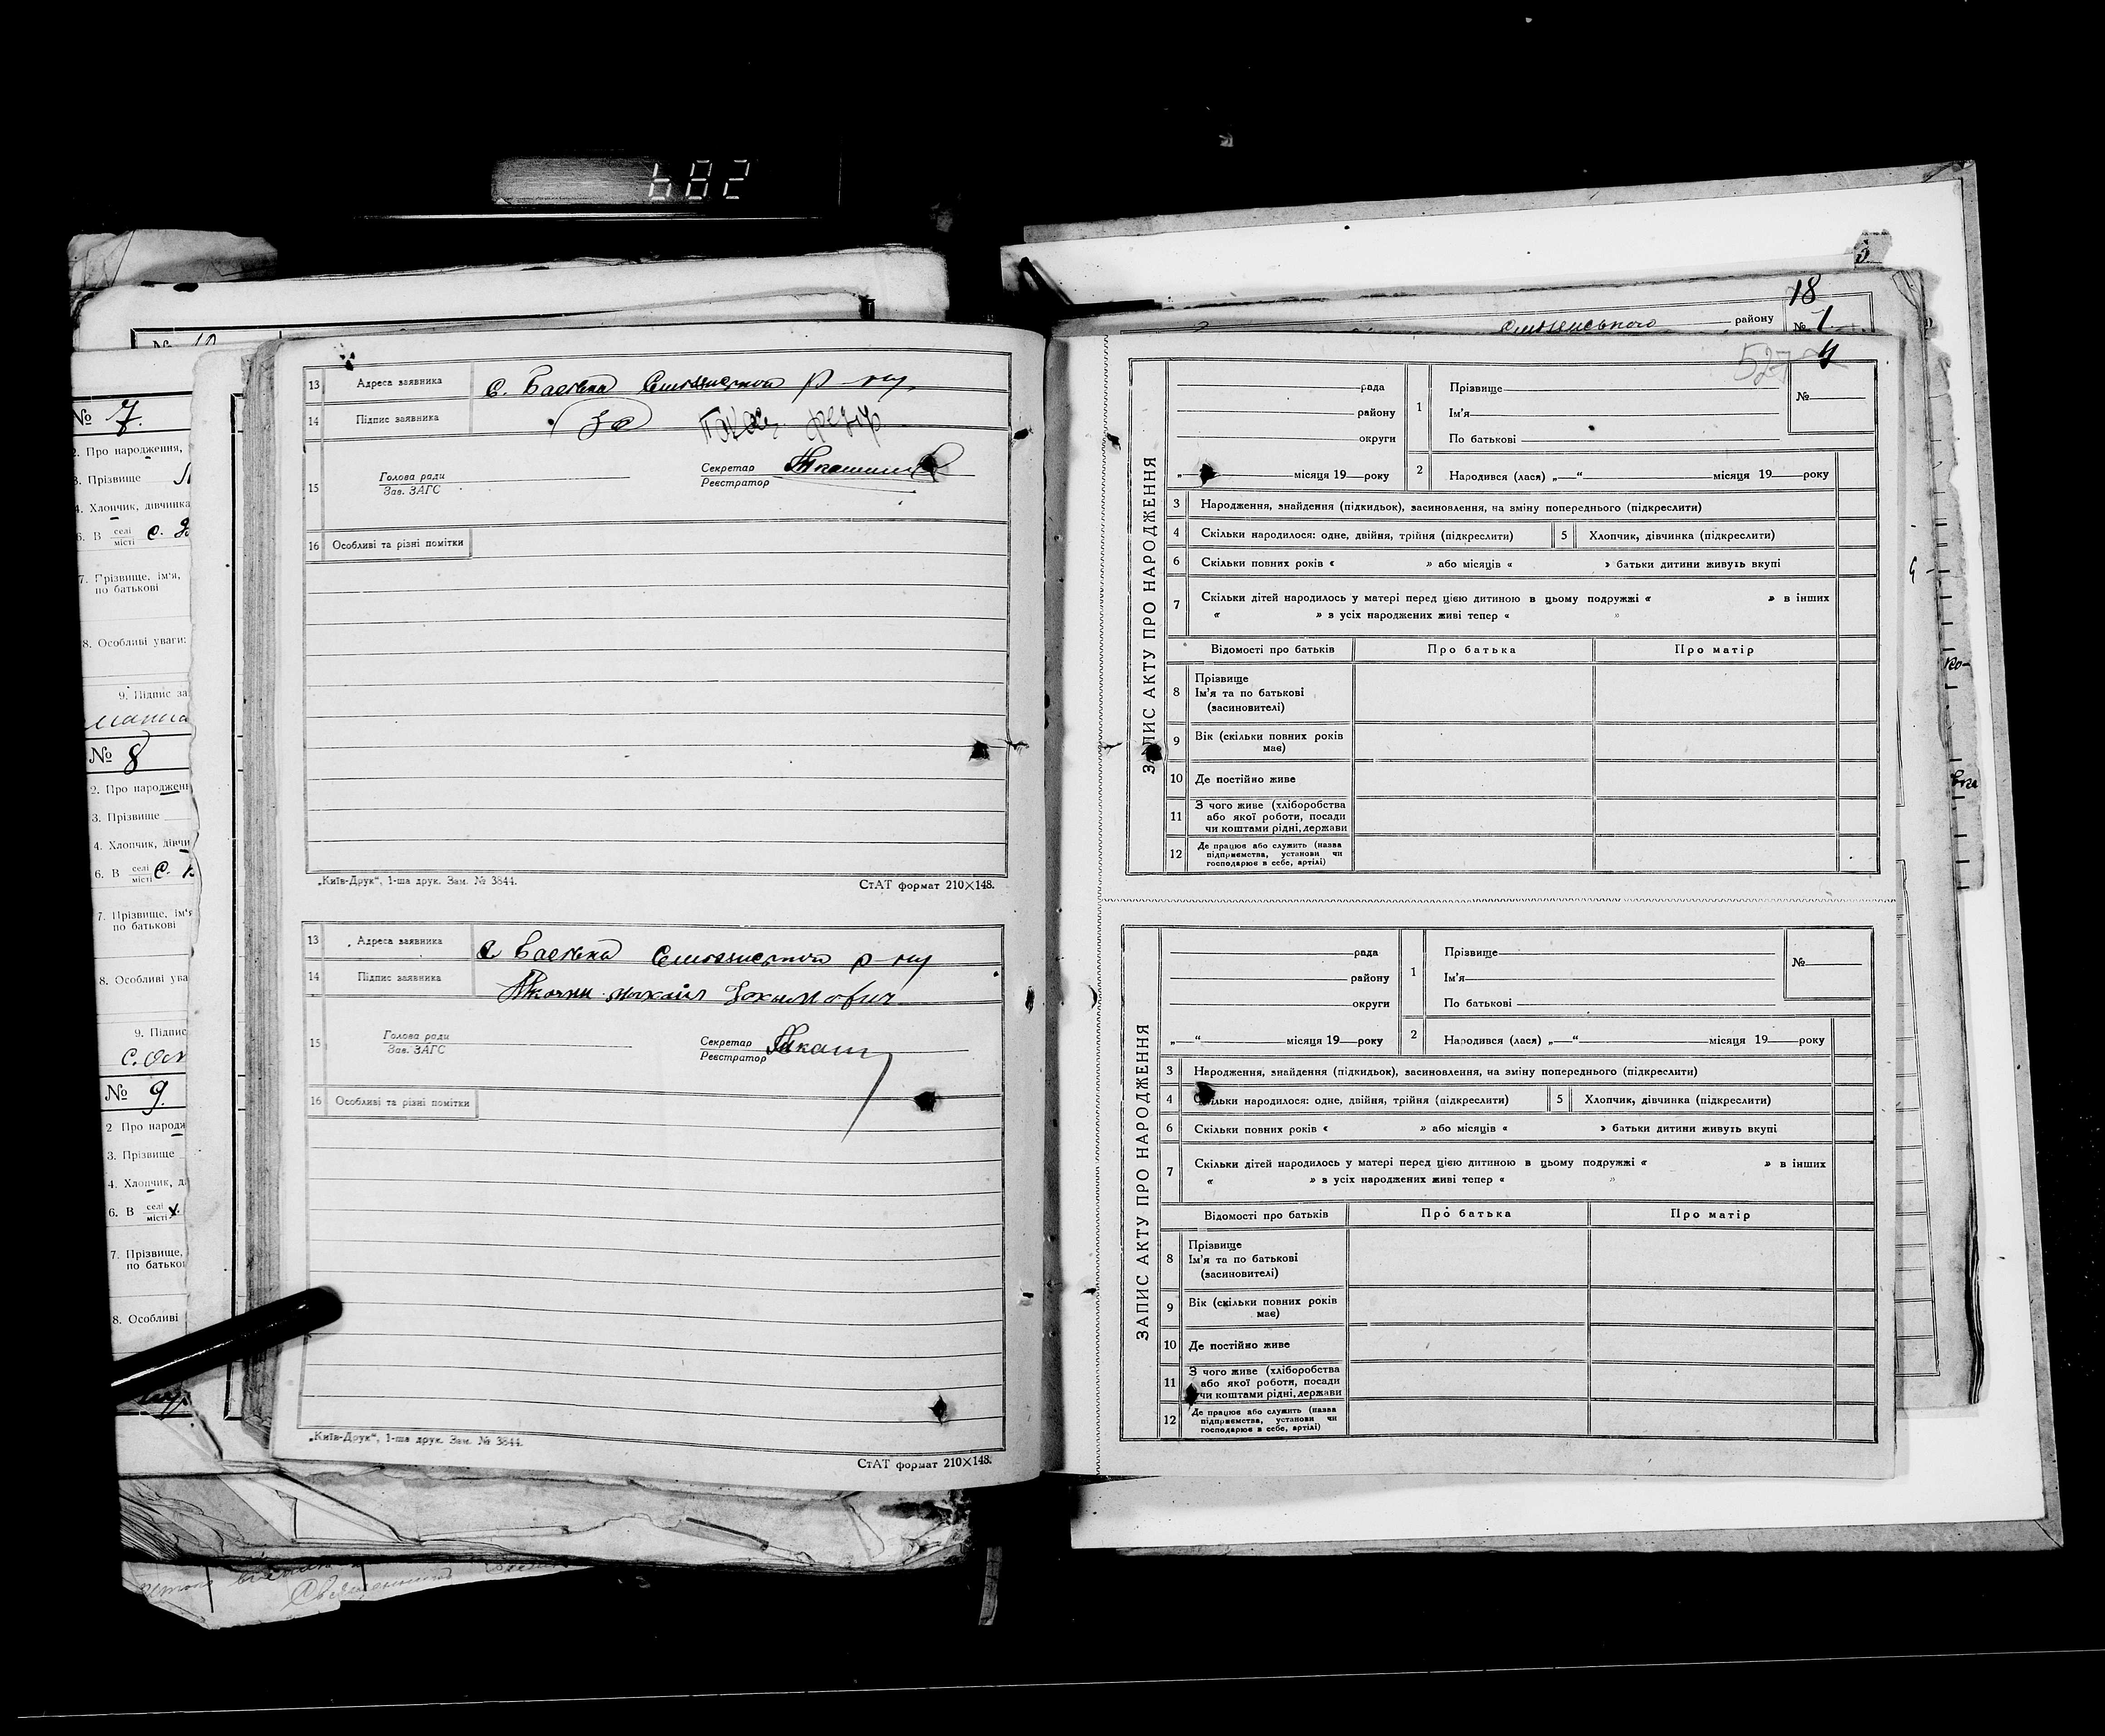 682
№ 7.
2. Про народження,
3. Прізвище
4. Хлопчик, дівчинка
6. В селі місті с.
7. Прізвище, ім'я,
по батькові
8. Особливі уваги:
9. Підпис за
№ 8
2. Про народжен
3. Прізвище
4. Хлопчик, дівчи
6. В селі місті с.
7. Прізвище, ім'я
по батькові
8. Особливі ува
9. Підпис
№ 9.
2 Про народж
3. Прізвище
4. Хлопчик, д
6. В селі місті
7. Прізвище,
по батькові
8. Особливі
13 Адреса заявника с.
14 Підпис заявника За
15 Голова ради Секретар
Зав. ЗАГС Реєстратор
16 Особливі та різні помітки
„Київ-Друк“, 1-ша друк. Зам. № 3844. СтАТ формат 210×148.
13 Адреса заявника с
14 Підпис заявника
15 Голова ради Секретар
Зав. ЗАГС Реєстратор
16 Особливі та різні помітки
„Київ-Друк“, 1-ша друк. Зам. № 3844.
СтАТ формат 210×148.
18
району № 1
527
4
ЗАПИС АКТУ ПРО НАРОДЖЕННЯ
рада 1 Прізвище №
району Ім'я
округи По батькові
„ місяця 19 року 2 Народився (лася) „ “ місяця 19 року
3 Народження, знайдення (підкидьок), засиновлення, на зміну попереднього (підкреслити)
4 Скільки народилося: одне, двійня, трійня (підкреслити) 5 Хлопчик, дівчинка (підкреслити)
6 Скільки повних років « » або місяців « » батьки дитини живуть вкупі
7 Скільки дітей народилось у матері перед цією дитиною в цьому подружжі « » в інших
« » з усіх народжених живі тепер « »
Відомості про батьків Про батька Про матір
8 Прізвище
Ім'я та по батькові
(засиновителі)
9 Вік (скільки повних років
має)
10 Де постійно живе
11 З чого живе (хліборобства
або якої роботи, посади
чи коштами рідні, держави
12 Де працює або служить (назва
підприємства, установи чи
господарює в себе, артілі)
ЗАПИС АКТУ ПРО НАРОДЖЕННЯ
рада 1 Прізвище №
району Ім'я
округи По батькові
„ “ місяця 19 року 2 Народився (лася) „ “ місяця 19 року
3 Народження, знайдення (підкидьок), засиновлення, на зміну попереднього (підкреслити)
4 Скільки народилося: одне, двійня, трійня (підкреслити) 5 Хлопчик, дівчинка (підкреслити)
6 Скільки повних років « » або місяців « » батьки дитини живуть вкупі
7 Скільки дітей народилось у матері перед цією дитиною в цьому подружжі « » в інших
« » з усіх народжених живі тепер « »
Відомості про батьків Про батька Про матір
8 Прізвище
Ім'я та по батькові
(засиновителі)
9 Вік (скільки повних років
має)
10 Де постійно живе
11 З чого живе (хліборобства
або якої роботи, посади
чи коштами рідні, держави
12 Де працює або служить (назва
підприємства, установи чи
господарює в себе, артілі)